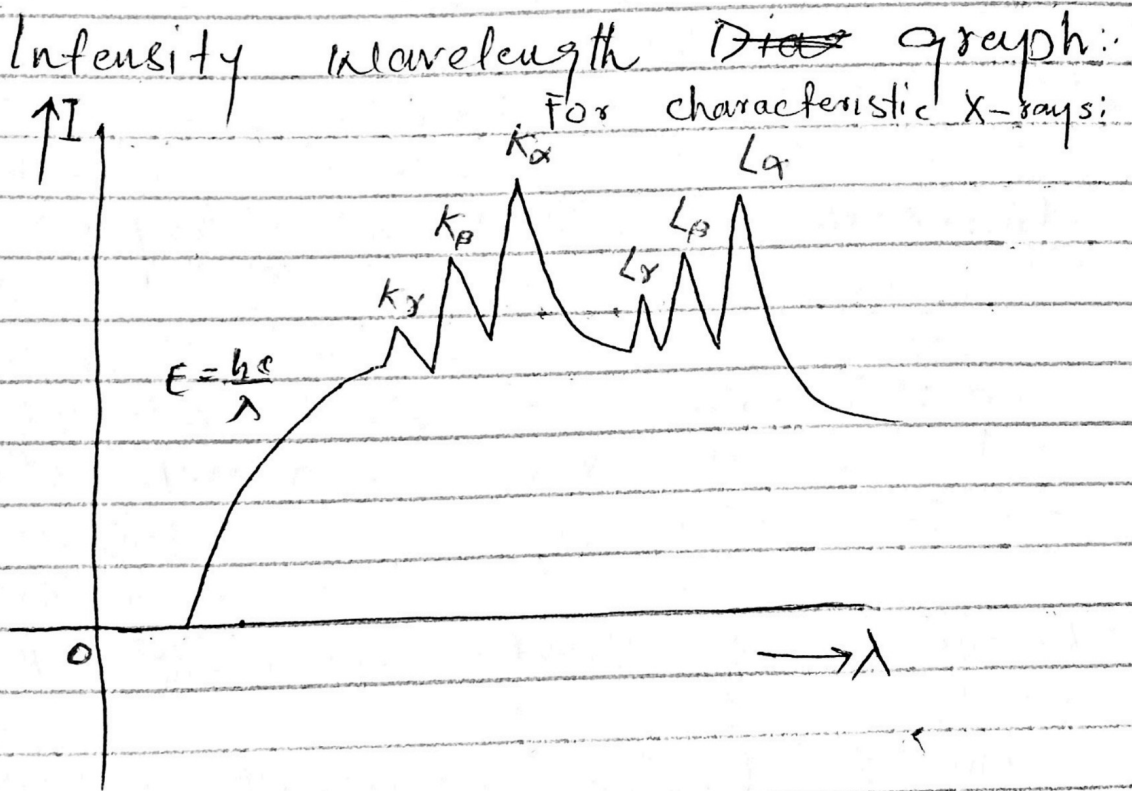 Intensity Wavelength graph:
For characteristic X-rays:
↑I
Kα
Lα
Kβ
Lβ
Kγ
Lγ
E = hc/λ
0
→λ